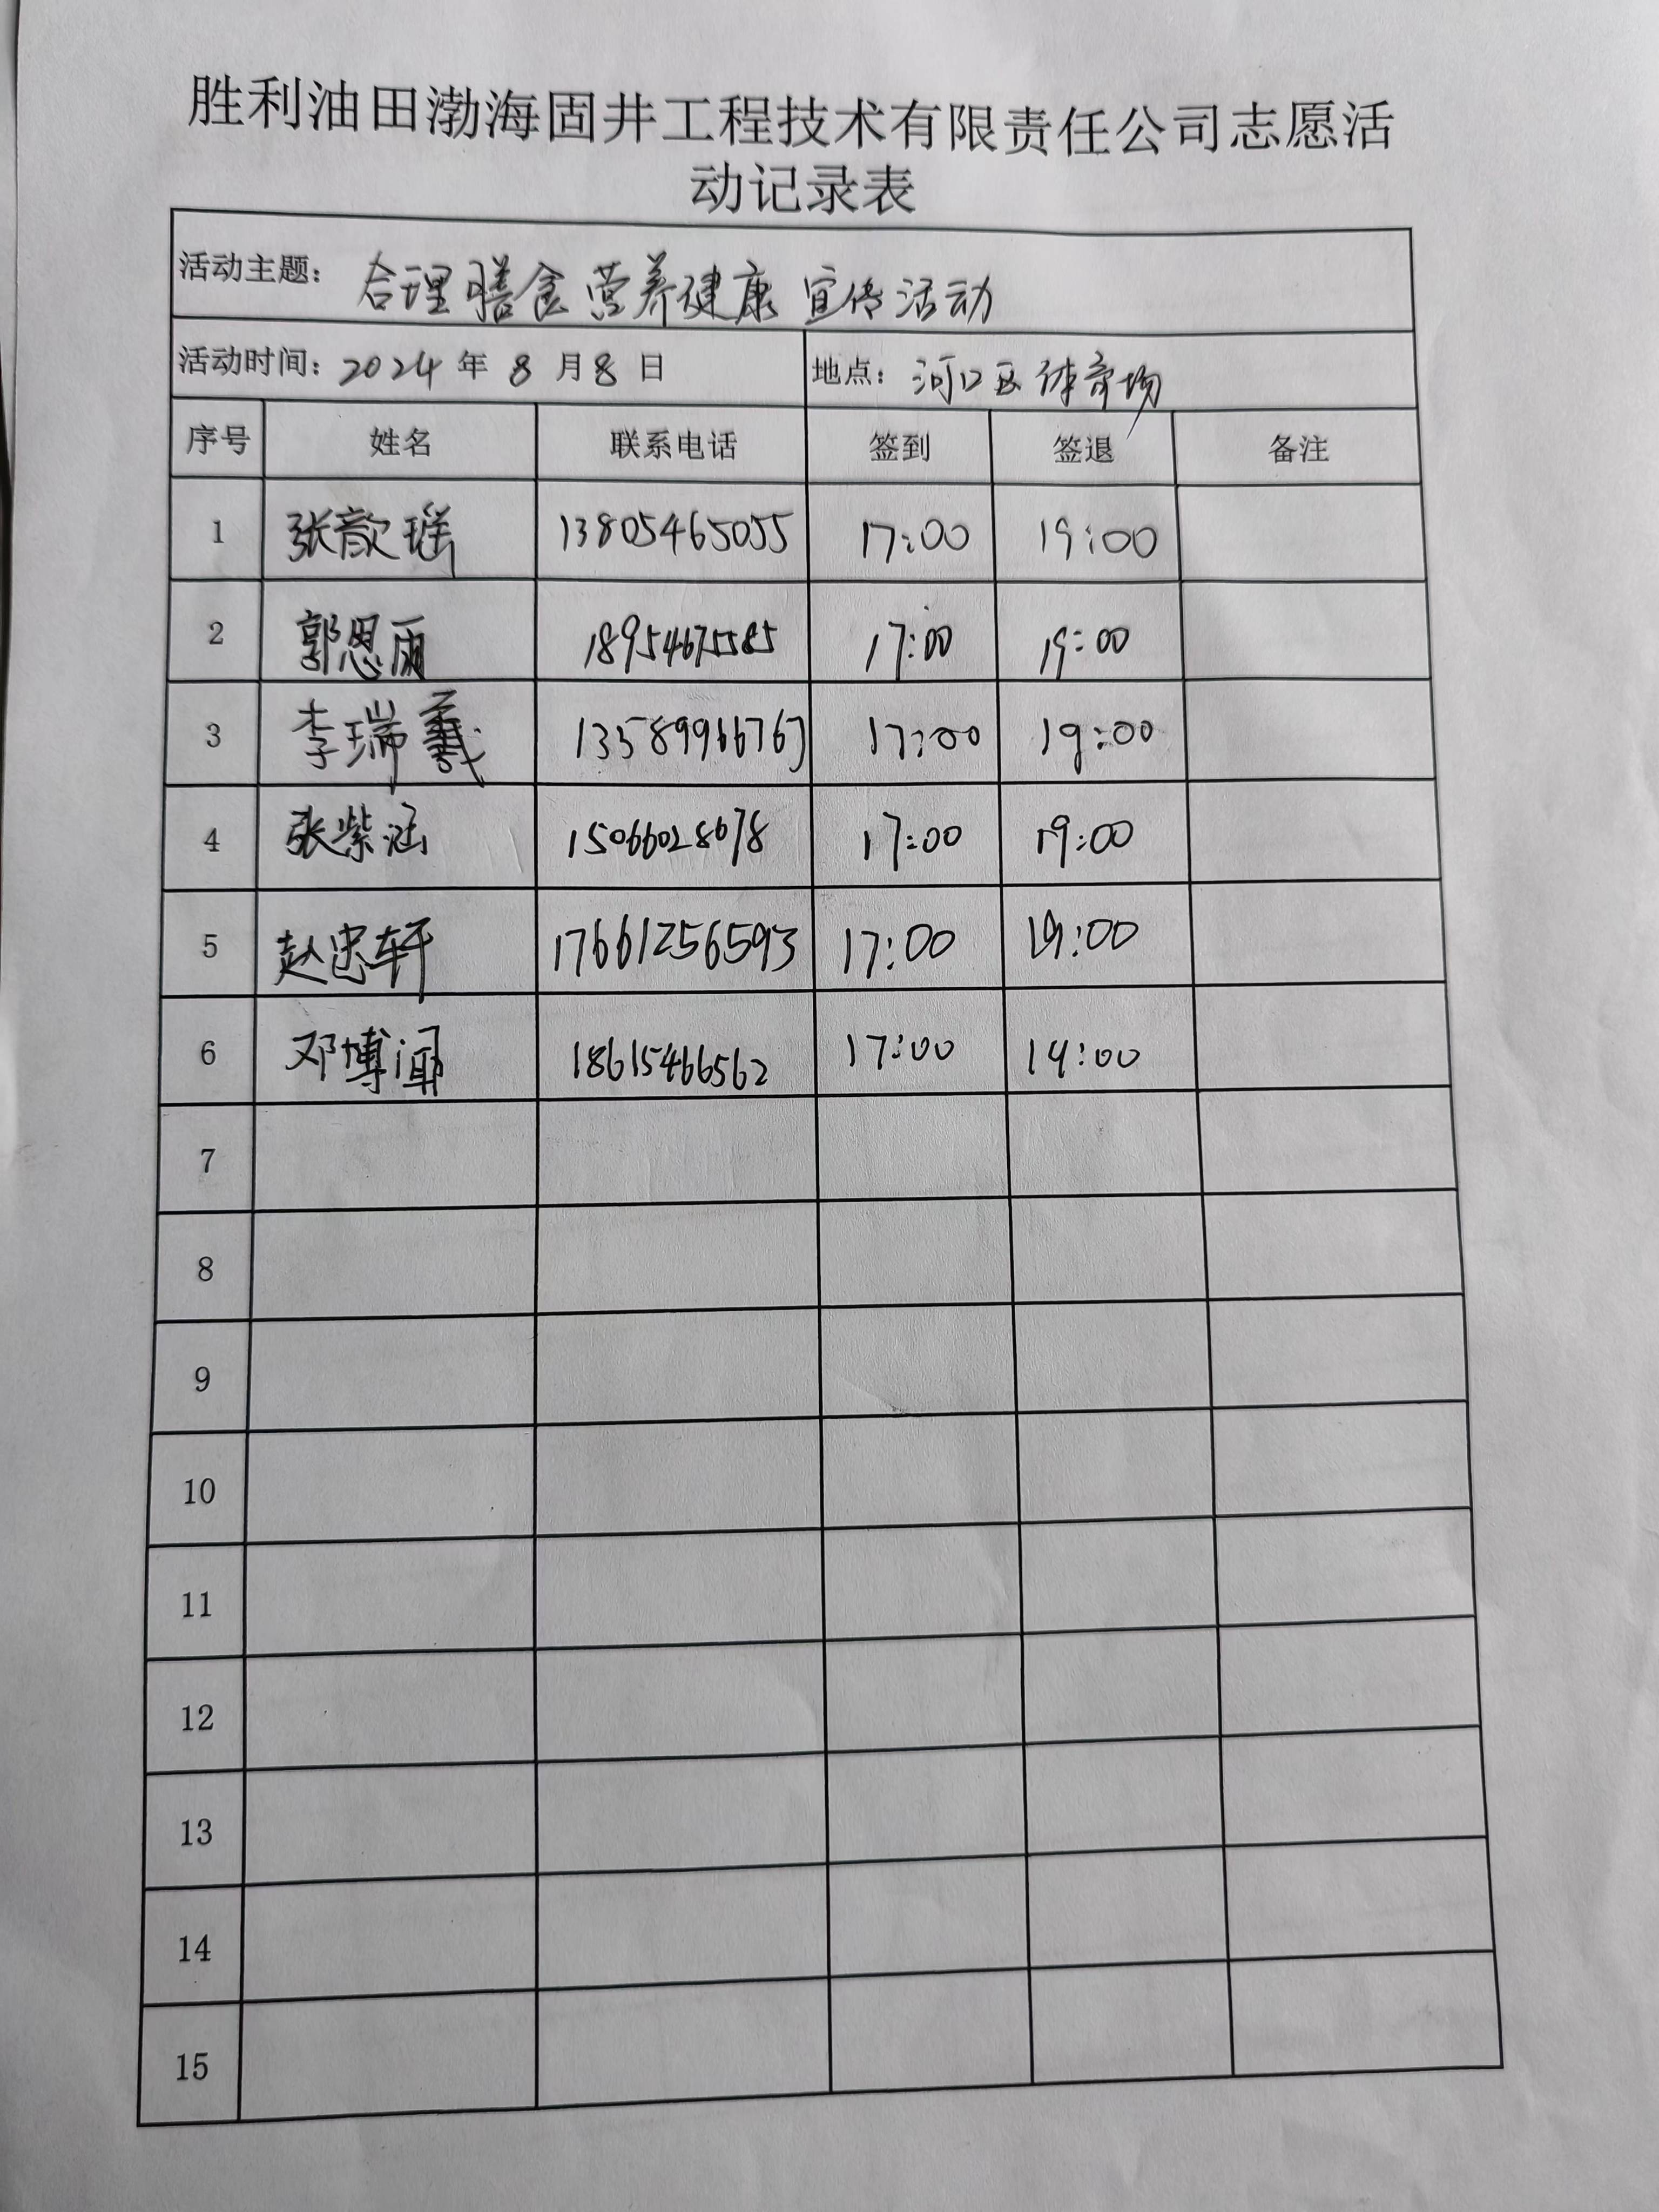 胜利油田渤海固井工程技术有限责任公司志愿活
动记录表
活动主题: 合理膳食营养健康宣传活动
活动时间: 2024 年 8 月 8 日 地点: 河口区体育场
序号 姓名 联系电话 签到 签退 备注
1 张歆瑶 13805465055 17:00 19:00
2 郭恩雨 18954675585 17:00 19:00
3 李瑞羲 17:00 19:00
4 张紫涵 15066028678 17:00 19:00
5 赵忠轩 17661256593 17:00 19:00
6 邓博闻 18615466562 17:00 19:00
7
8
9
10
11
12
13
14
15